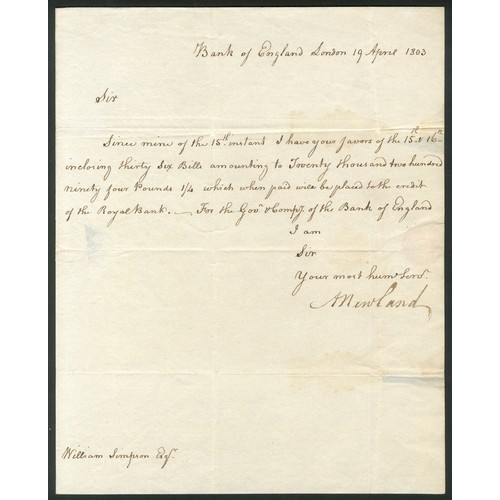 Bank of England London 19 April 1803
Sir
Since mine of the 15th instant I have your favors of the 15th & 16th
inclosing thirty Six Bills amounting to Twenty thousand two hundred
ninety four Pounds 1/4 which when paid will be placed to the credit
of the Royal Bank. — For the Govr & Compy. of the Bank of England
I am
Sir
Your most humle Servt.
A Newland
William Simpson Esqr.